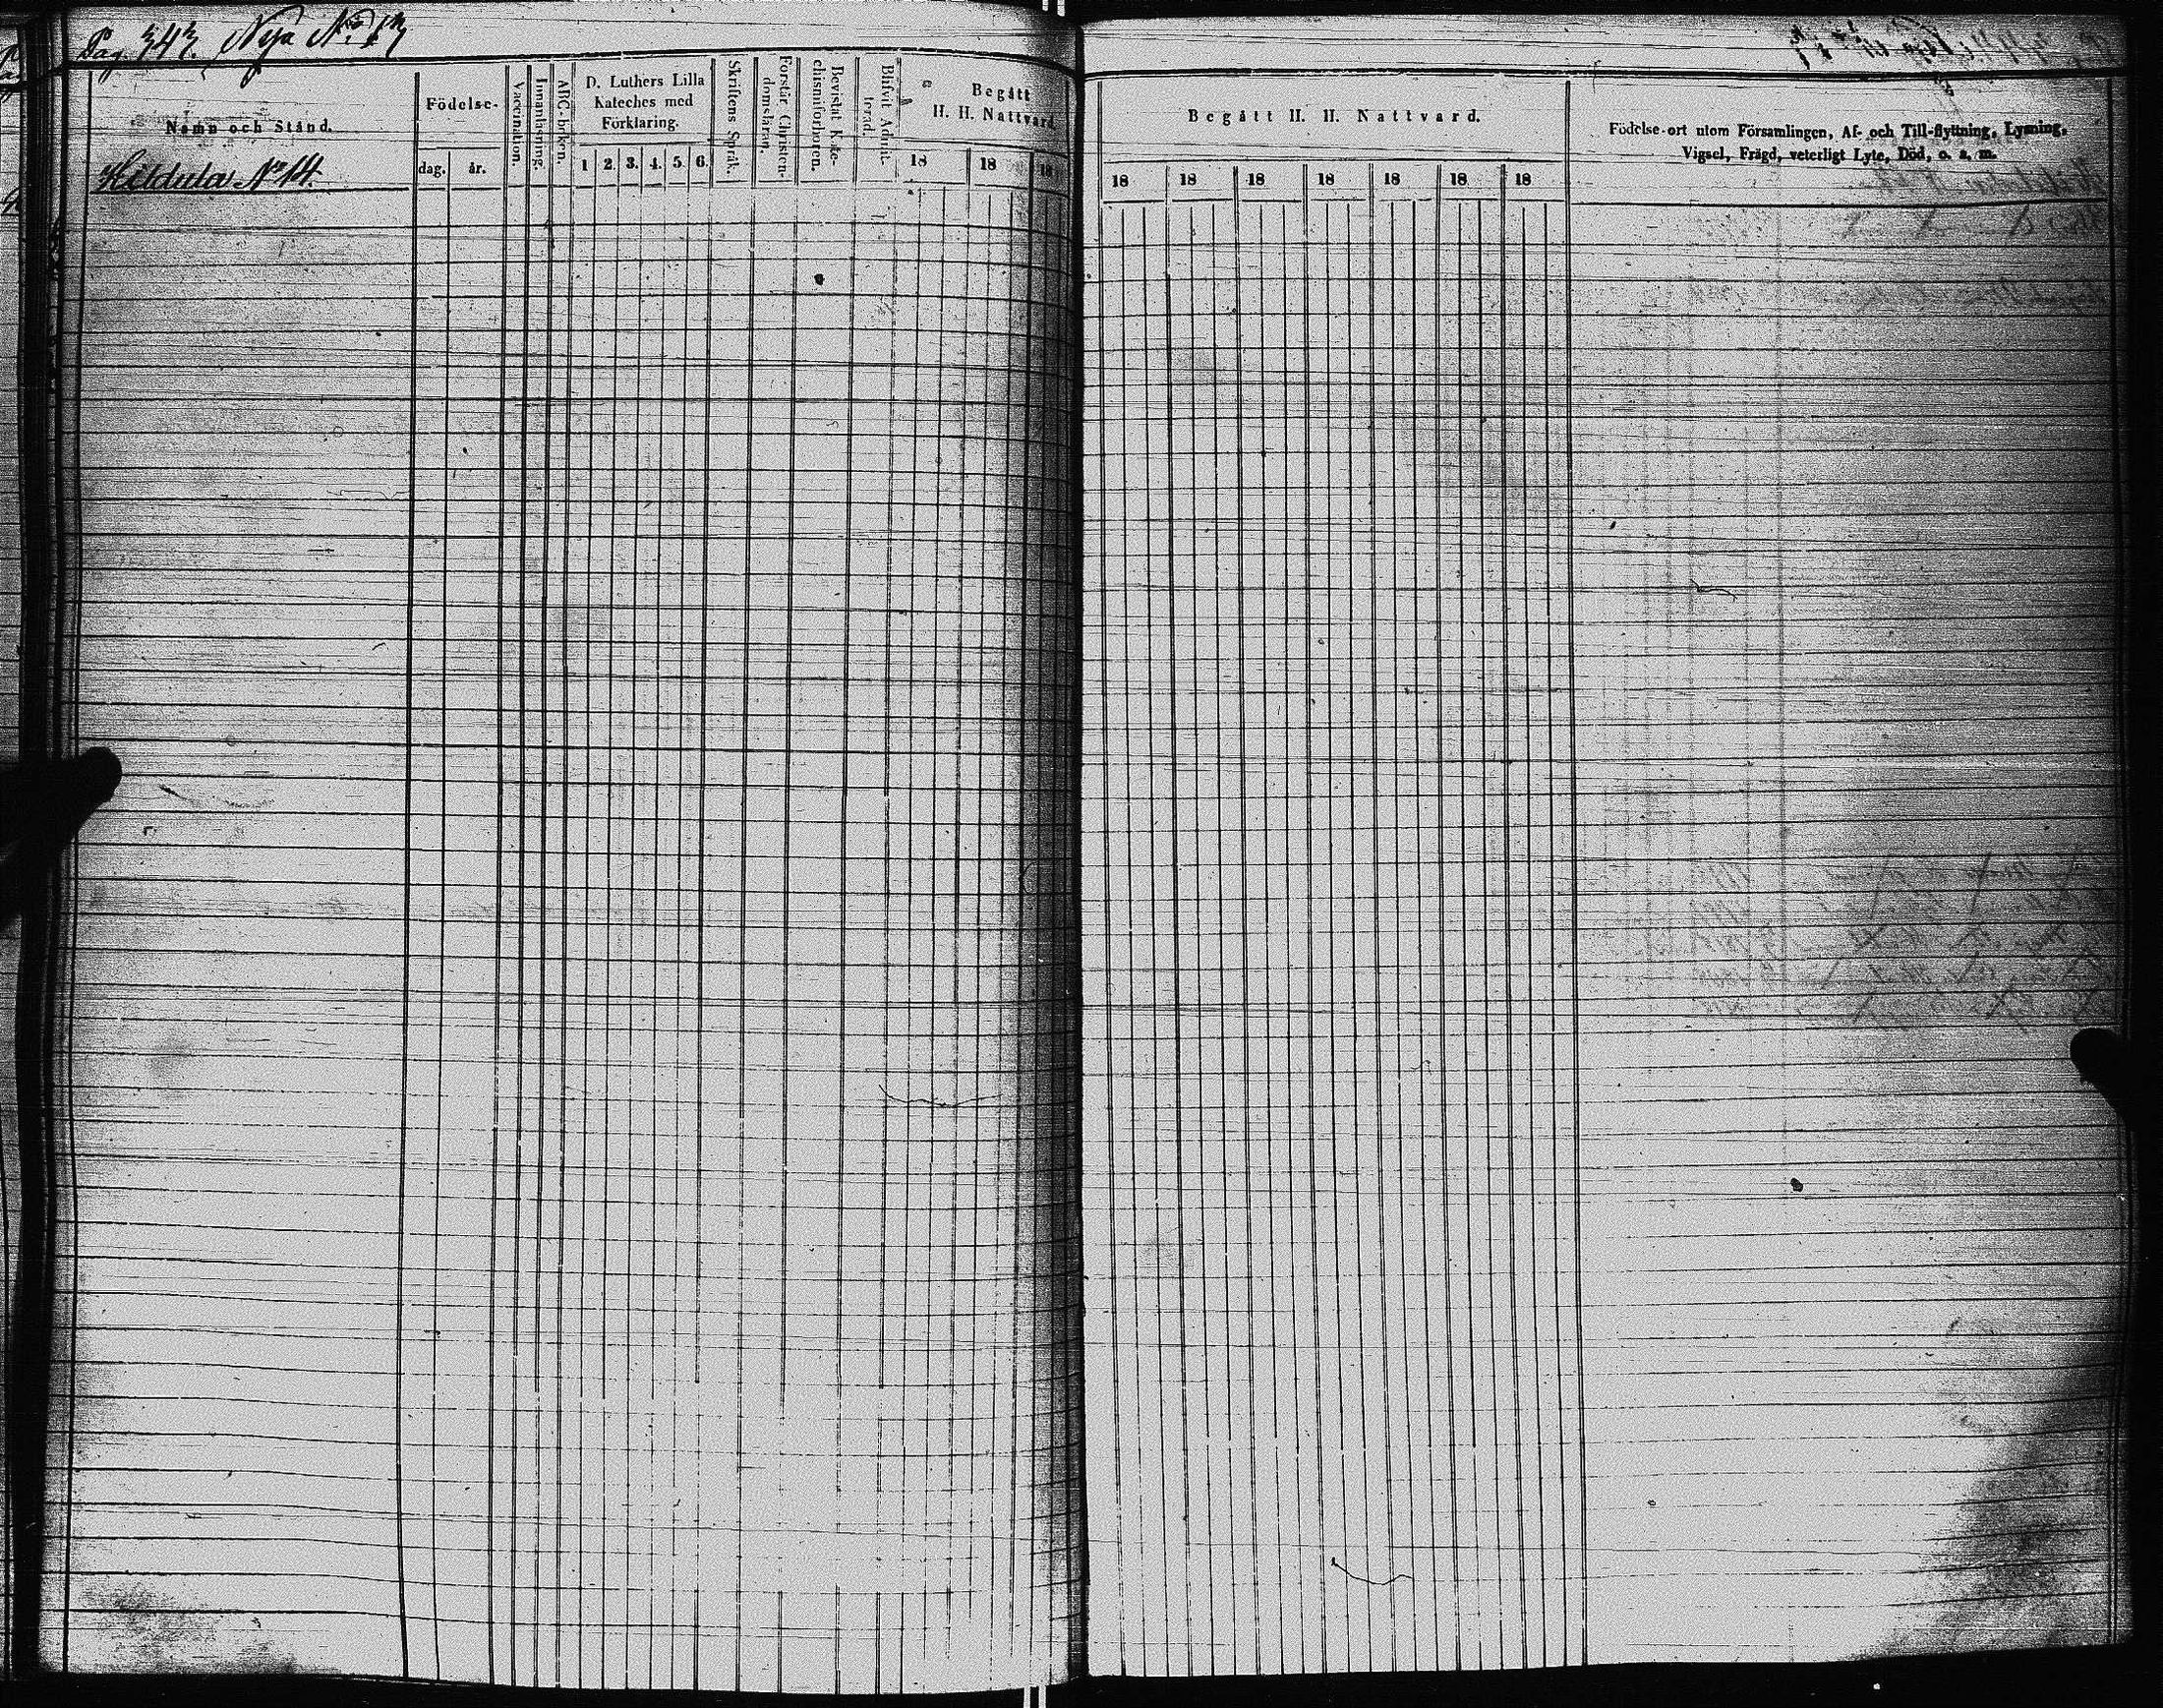 Pag. 343. Nya No 13
Namn och Stånd.
Födelse-
dag.
år.
Vaccination.
Innanläsning.
ABC-boken.
D. Luthers Lilla
Kateches med
Förklaring.
1 2. 3. 4. 5. 6.
Skriftens Språk.
Förstår Christen-
domsläran.
Bevistat Kate-
chismiförhören.
Blifvit Admit-
terad.
Begått
H. H. Nattvard.
18 18 18
Hildula No 14.
Begått H. H. Nattvard.
18 18 18 18 18 18 18
Födelse-ort utom Församlingen, Af- och Till-flyttning, Lysning,
Vigsel, Frägd, veterligt Lyte, Död, o. s. m.